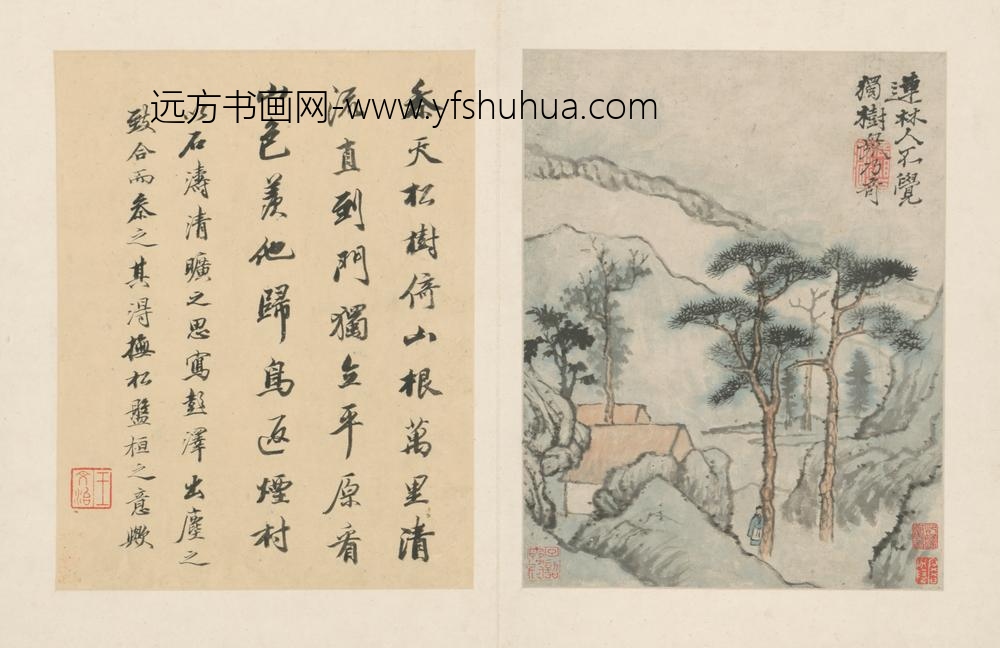 連林人不覺
獨樹衆乃奇
參天松樹倚山根萬里清
流直到門獨立平原看
山色羨他歸鳥返煙村
以石濤清曠之思寫彭澤出塵之
致合而參之其得撫松盤桓之意歟
王文治
远方书画网-www.yfshuhua.com